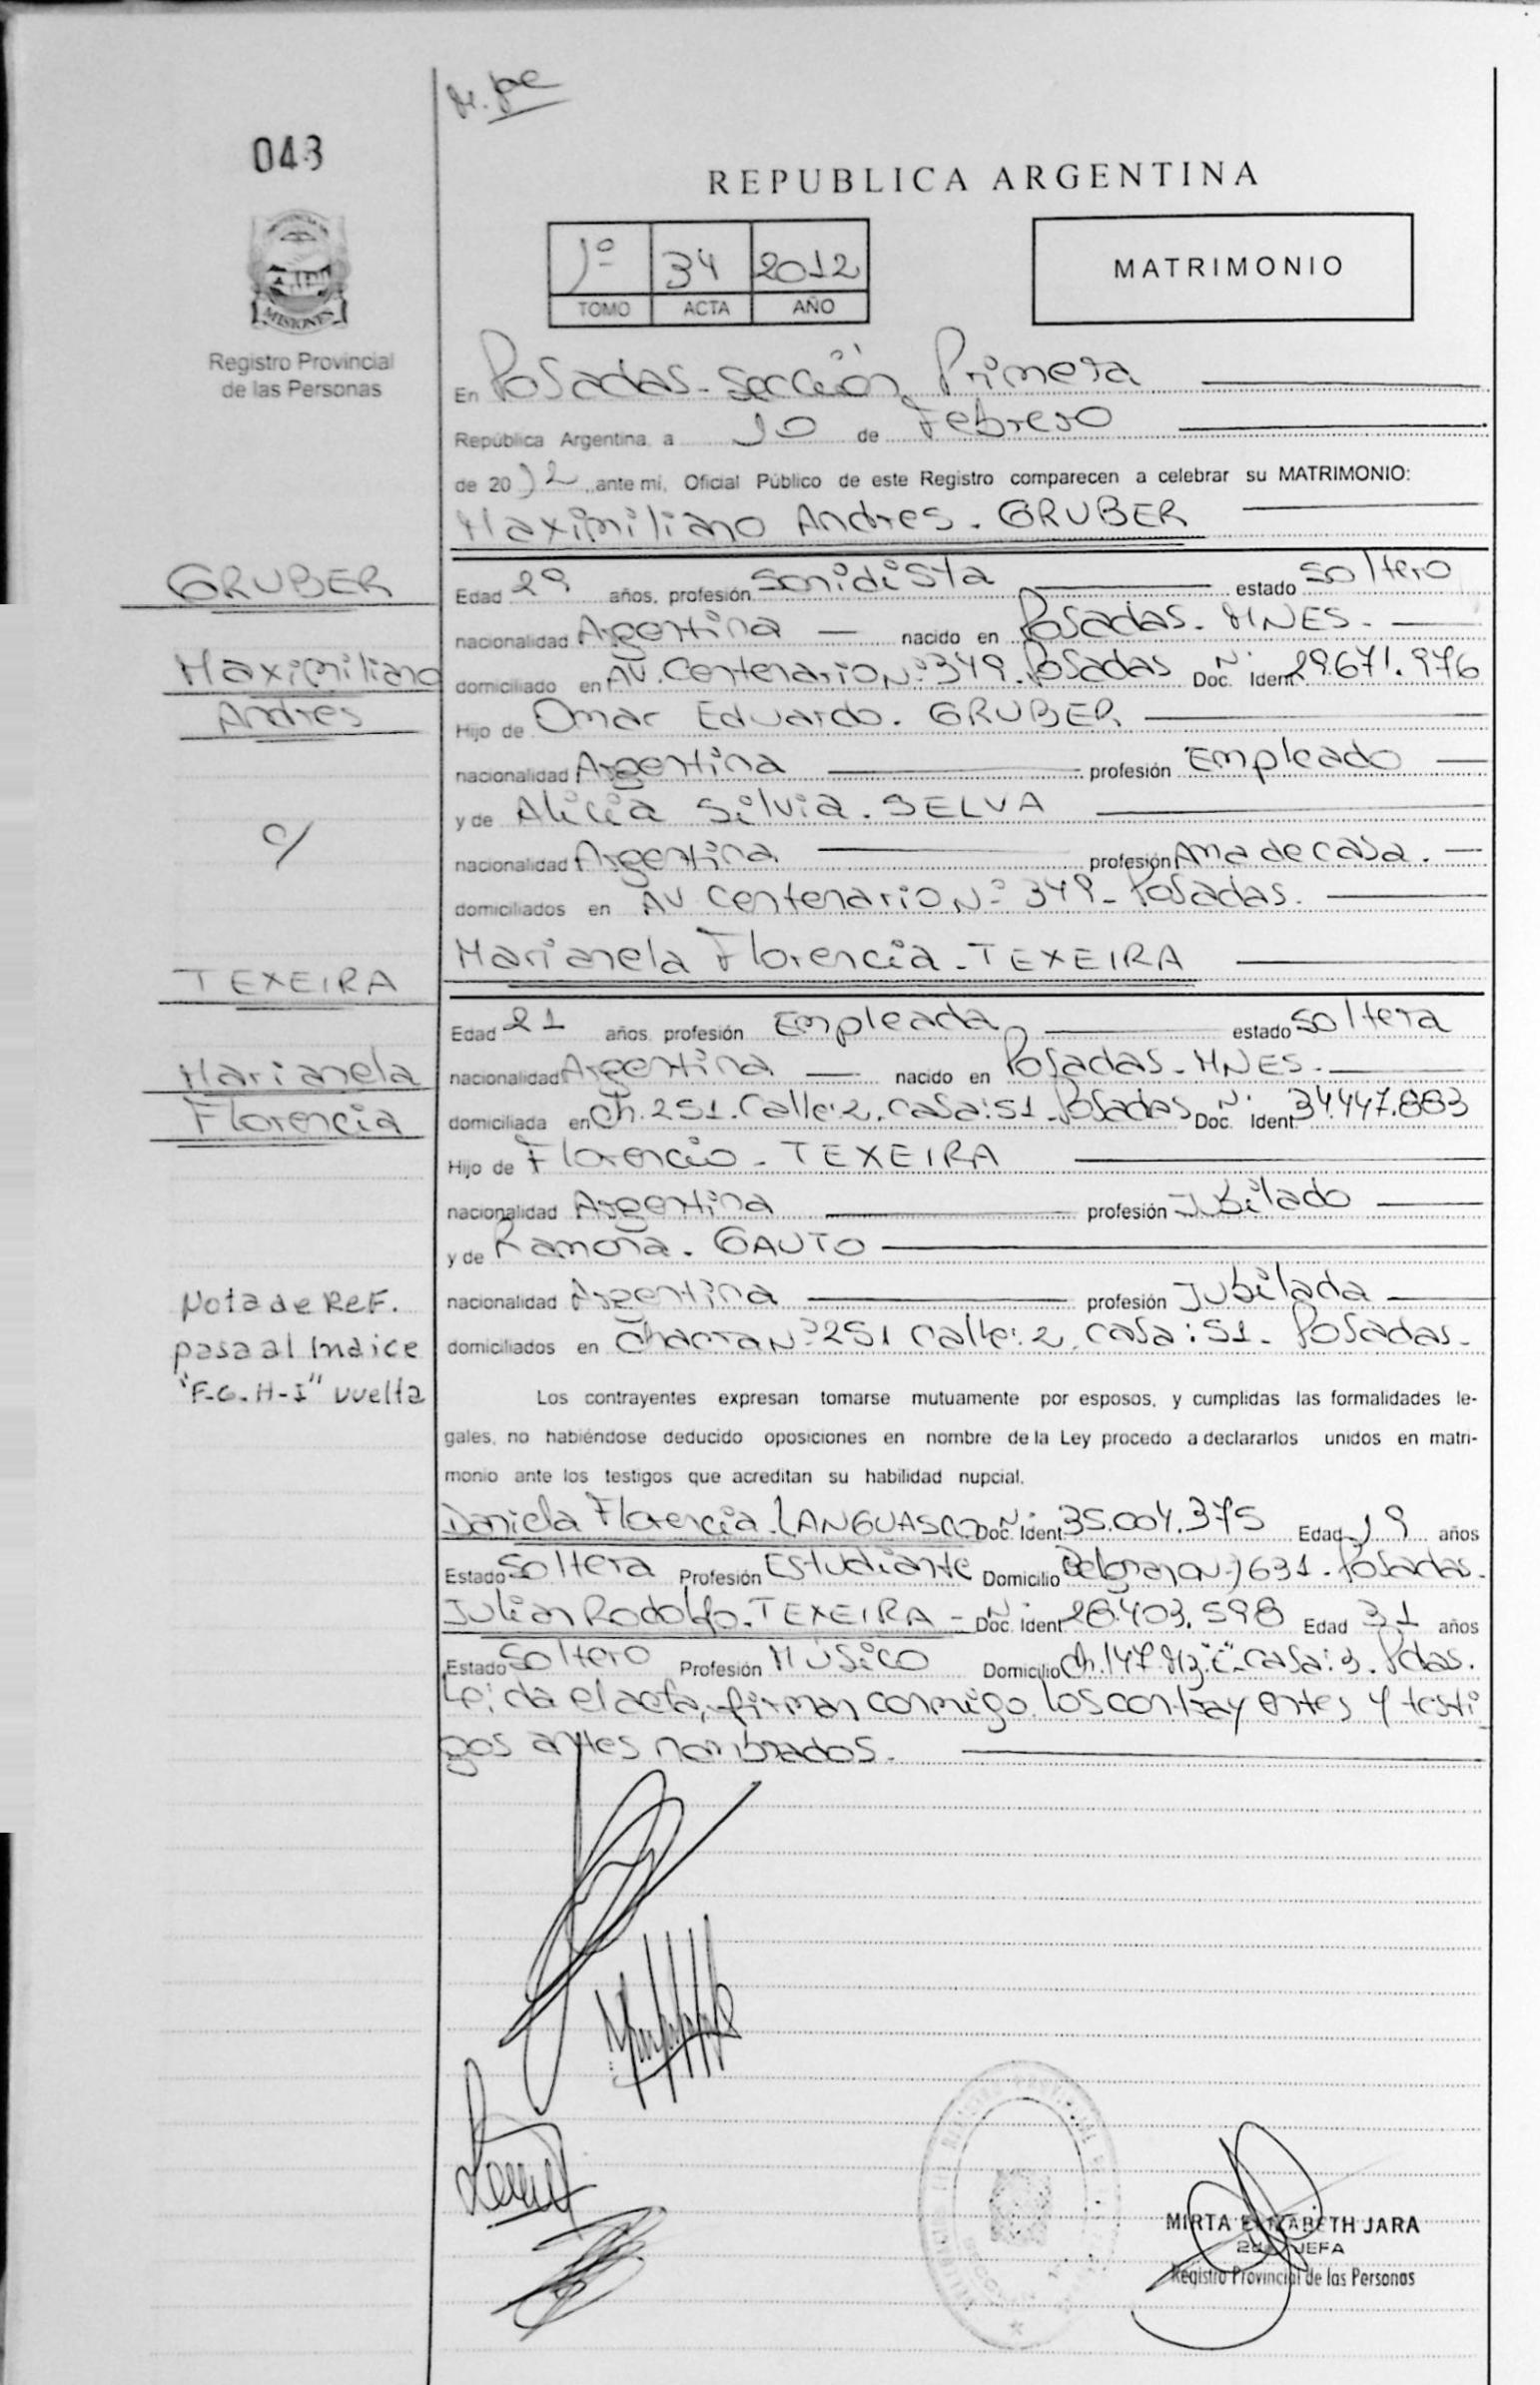 043
REPUBLICA ARGENTINA
1º 34 2012
TOMO ACTA AÑO
MATRIMONIO
MISIONES
Registro Provincial
de las Personas
En Posadas - Sección Primera
República Argentina a 10 de Febrero
de 2012 ante mi, Oficial Público de este Registro comparecen a celebrar su MATRIMONIO:
Maximiliano Andres. GRUBER
GRUBER
Maximiliano
Andres
c/
TEXEIRA
Marianela
Florencia
Nota de REF.
pasa al Indice
"F-G-H-I" vuelta
Edad 29 años, profesión sonidista estado soltero
nacionalidad Argentina nacido en Posadas. MNES.
domiciliado en AV. Centenario Nº 349. Posadas Doc. Ident. Nº 29.671.976
Hijo de Omar Eduardo. GRUBER
nacionalidad Argentina profesión Empleado
y de Alicia Silvia. SELVA
nacionalidad Argentina profesión Ama de casa.
domiciliados en AV Centenario Nº 349 - Posadas.
Marianela Florencia - TEXEIRA
Edad 21 años, profesión Empleada estado soltera
nacionalidad Argentina nacido en Posadas - MNES.
domiciliada en Ch. 251. Calle: 2. casa: 51 - Posadas Doc. Ident. Nº 34.447.883
Hijo de Florencio - TEXEIRA
nacionalidad Argentina profesión Jubilado
y de Ramona. GAUTO
nacionalidad Argentina profesión Jubilada
domiciliados en Chacra Nº 251 Calle: 2. casa: 51 - Posadas -
Los contrayentes expresan tomarse mutuamente por esposos, y cumplidas las formalidades le-
gales, no habiéndose deducido oposiciones en nombre de la Ley procedo a declararlos unidos en matri-
monio ante los testigos que acreditan su habilidad nupcial.
Daniela Florencia. LANGUASCO Doc. Ident. Nº 35.004.375 Edad 19 años
Estado soltera Profesión Estudiante Domicilio Belgrano Nº 1631 - Posadas.
Julian Rodolfo. TEXEIRA - Doc. Ident. Nº 28.403.598 Edad 31 años
Estado soltero Profesión Músico Domicilio Ch. 147. Mz. "C" - casa: 3. Pdas.
Leida el acta, firman conmigo los contrayentes y testi
gos antes nombrados.
MIRTA ELIZABETH JARA
JEFA
Registro Provincial de las Personas